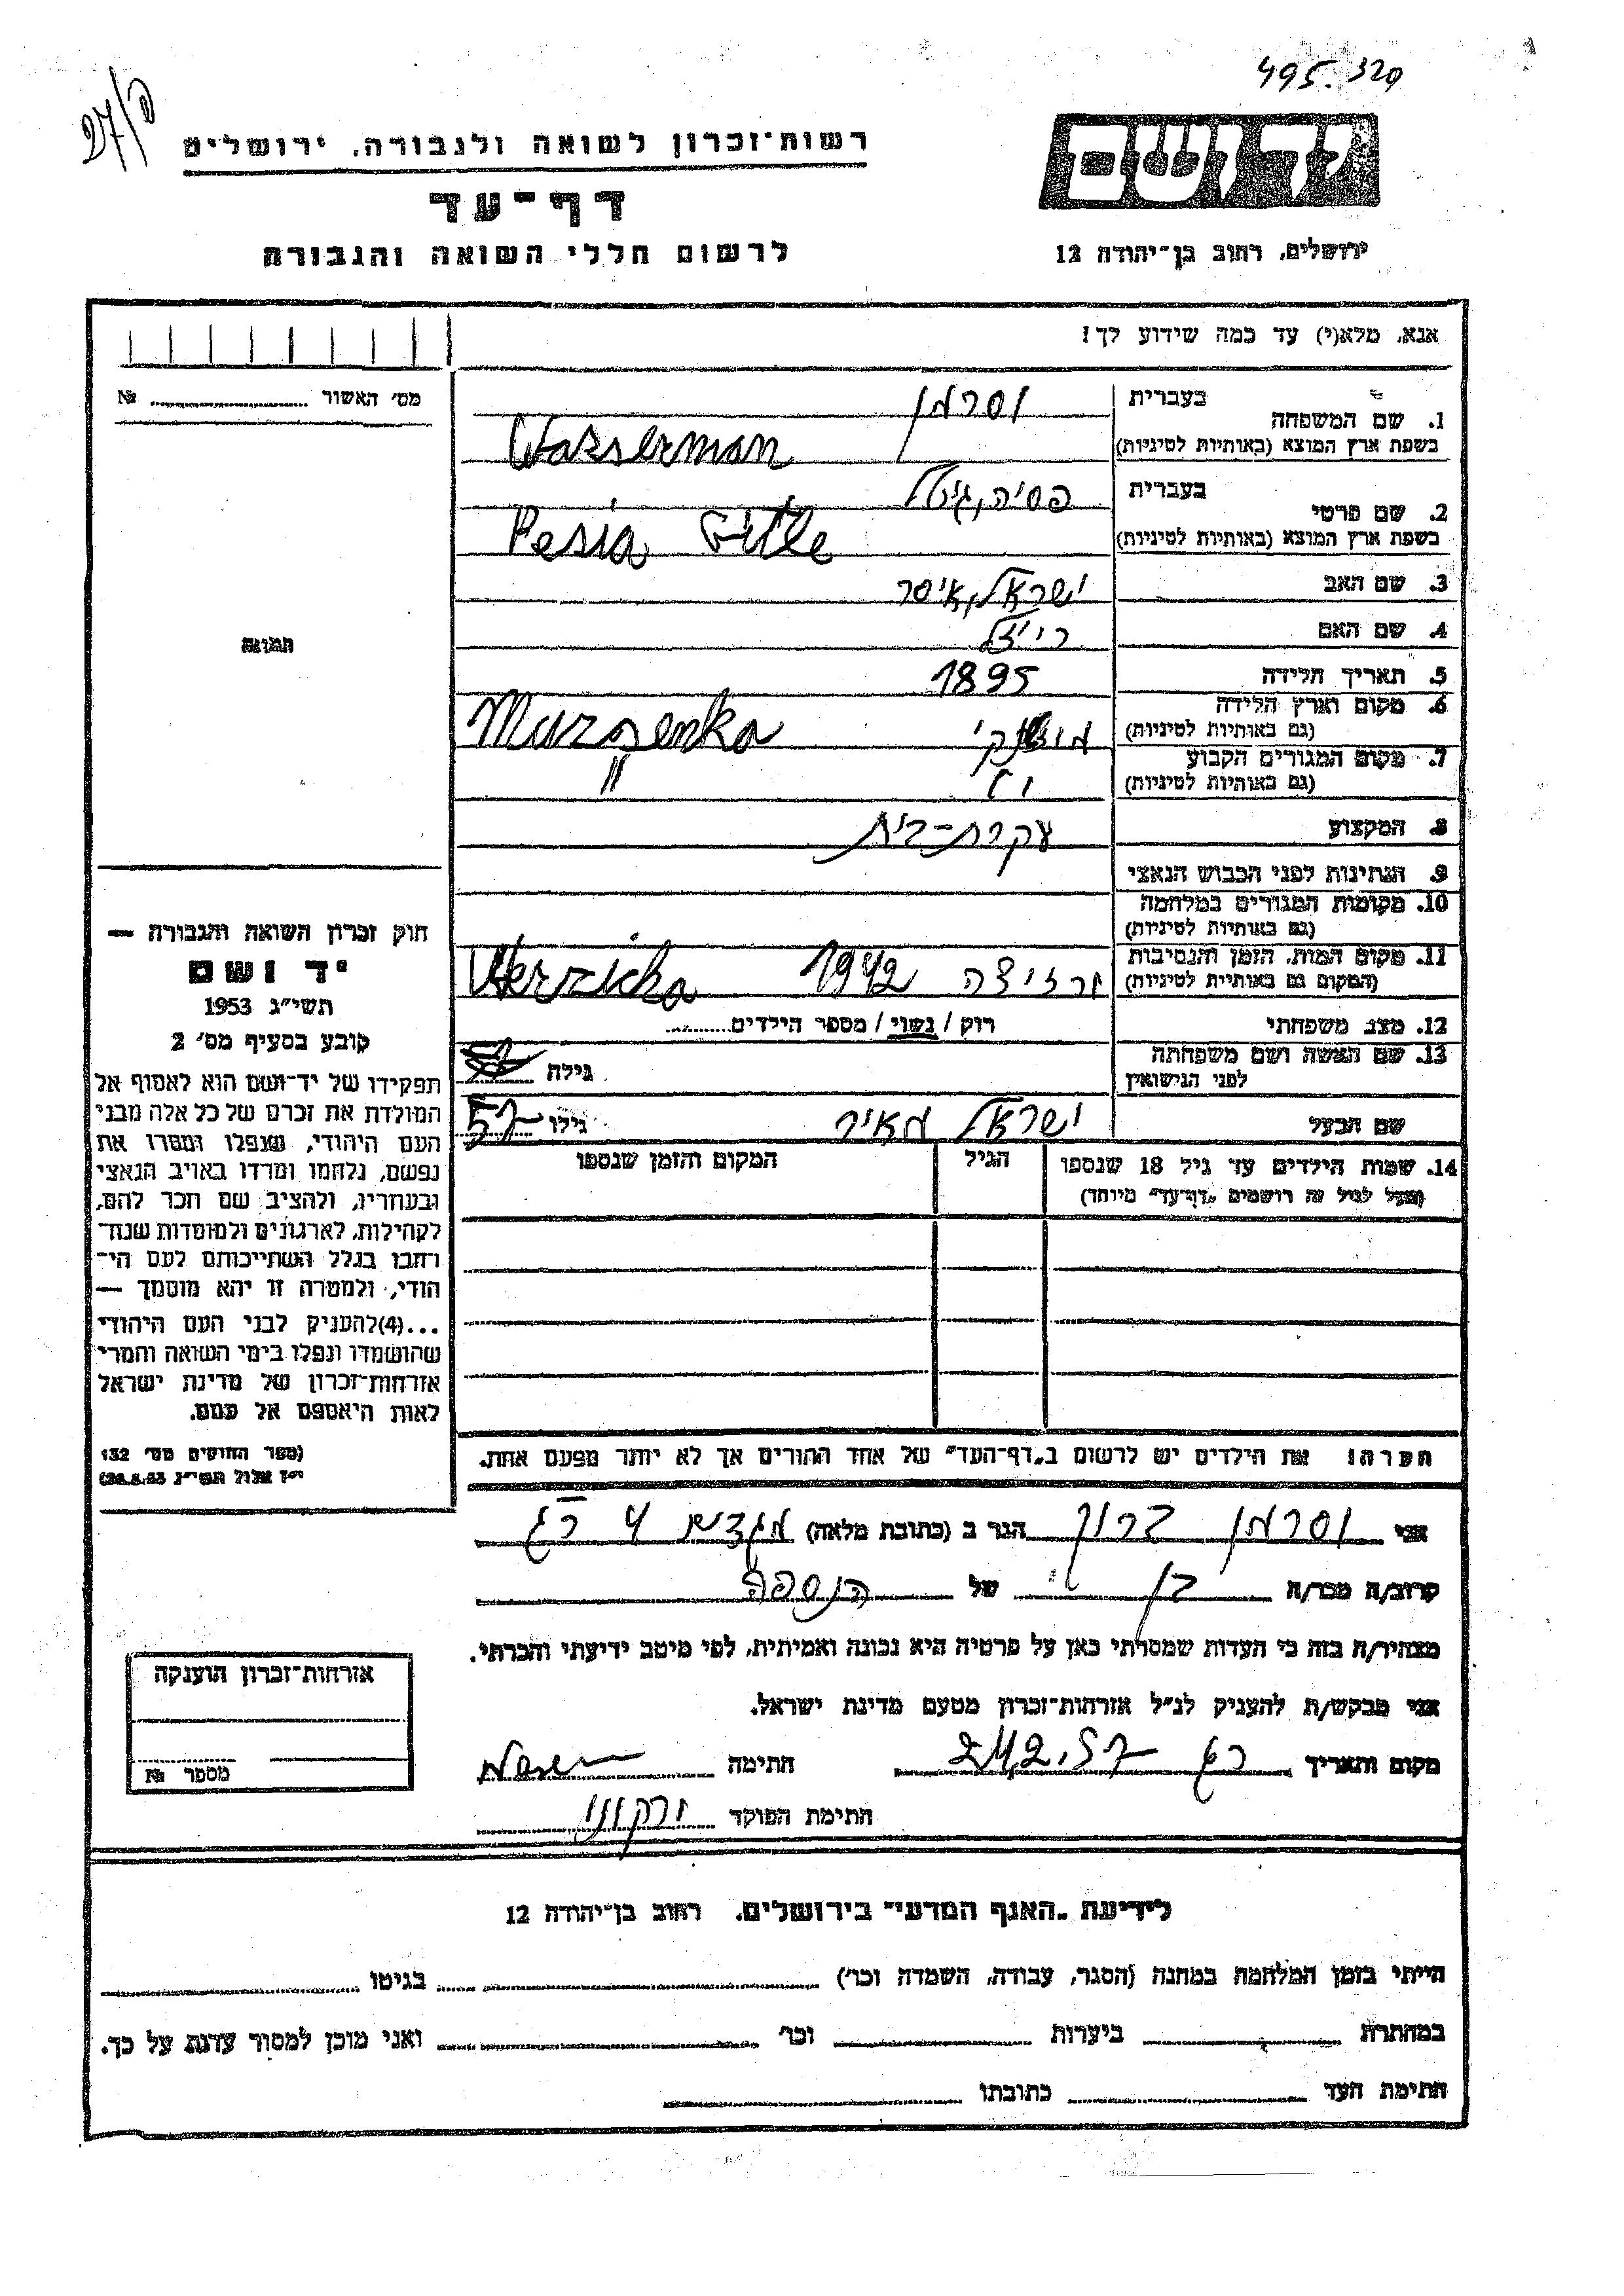 495.320
27/פ
רשות־זכרון לשואה ולגבורה, ירושלים
דף־עד
לרשום חללי השואה והגבורה
יד ושם
ירושלים, רחוב בן־יהודה 12
אנא, מלא(י) עד כמה שידוע לך!
מס' האשור № 
1. שם המשפחה בעברית וסרמן
בשפת ארץ המוצא (באותיות לטיניות) Wasserman
2. שם פרטי בעברית פסיה, גיטל
בשפת ארץ המוצא (באותיות לטיניות) Pesia Gitle
3. שם האב ישראל, איסר
4. שם האם רייזל
5. תאריך הלידה 1895
6. מקום וארץ הלידה (גם באותיות לטיניות) Murzsenka
7. מקום המגורים הקבוע (גם באותיות לטיניות) "
8. המקצוע עקרת-בית
9. הנתינות לפני הכבוש הנאצי
10. מקומות המגורים במלחמה (גם באותיות לטיניות)
11. מקום המות, הזמן והנסיבות (המקום גם באותיות לטיניות) 1942
12. מצב משפחתי רוק / נשוי / מספר הילדים
13. שם האשה ושם משפחתה לפני הנישואין גילה
שם הבעל ישראל מאיר גילו 57
14. שמות הילדים עד גיל 18 שנספו הגיל המקום והזמן שנספו
(מעל לגיל זה רושמים "דף־עד" מיוחד)
הערה: את הילדים יש לרשום ב"דף־העד" של אחד ההורים אך לא יותר מפעם אחת.
תמונה
חוק זכרון השואה והגבורה —
יד ושם
תשי"ג 1953
קובע בסעיף מס' 2
תפקידו של יד־ושם הוא לאסוף אל
המולדת את זכרם של כל אלה מבני
העם היהודי, שנפלו ומסרו את
נפשם, נלחמו ומרדו באויב הנאצי
ובעוזריו, ולהציב שם וזכר להם,
לקהילות, לארגונים ולמוסדות שנח־
רבו בגלל השתייכותם לעם הי־
הודי, ולמטרה זו יהא מוסמך —
...(4)להעניק לבני העם היהודי
שהושמדו ונפלו בימי השואה והמרי
אזרחות־זכרון של מדינת ישראל
לאות היאספם אל עמם.
(ספר החוקים מס' 132
י"ז אלול תשי"ג 28.8.53)
אני וסרמן ברוך הגר ב (כתובת מלאה)
קרוב/ה מכר/ה בן של הנספה
מצהיר/ה בזה כי העדות שמסרתי כאן על פרטיה היא נכונה ואמיתית, לפי מיטב ידיעתי והכרתי.
אני מבקש/ת להעניק לנ"ל אזרחות־זכרון מטעם מדינת ישראל.
מקום ותאריך רג 24.2.57 חתימה
חתימת הפוקד
אזרחות־זכרון הוענקה
מספר №
לידיעת "האגף המדעי" בירושלים, רחוב בן־יהודה 12
הייתי בזמן המלחמה במחנה (הסגר, עבודה, השמדה וכו') בגיטו
במחתרת ביערות וכו' ואני מוכן למסור עדות על כך.
חתימת העד כתובתו